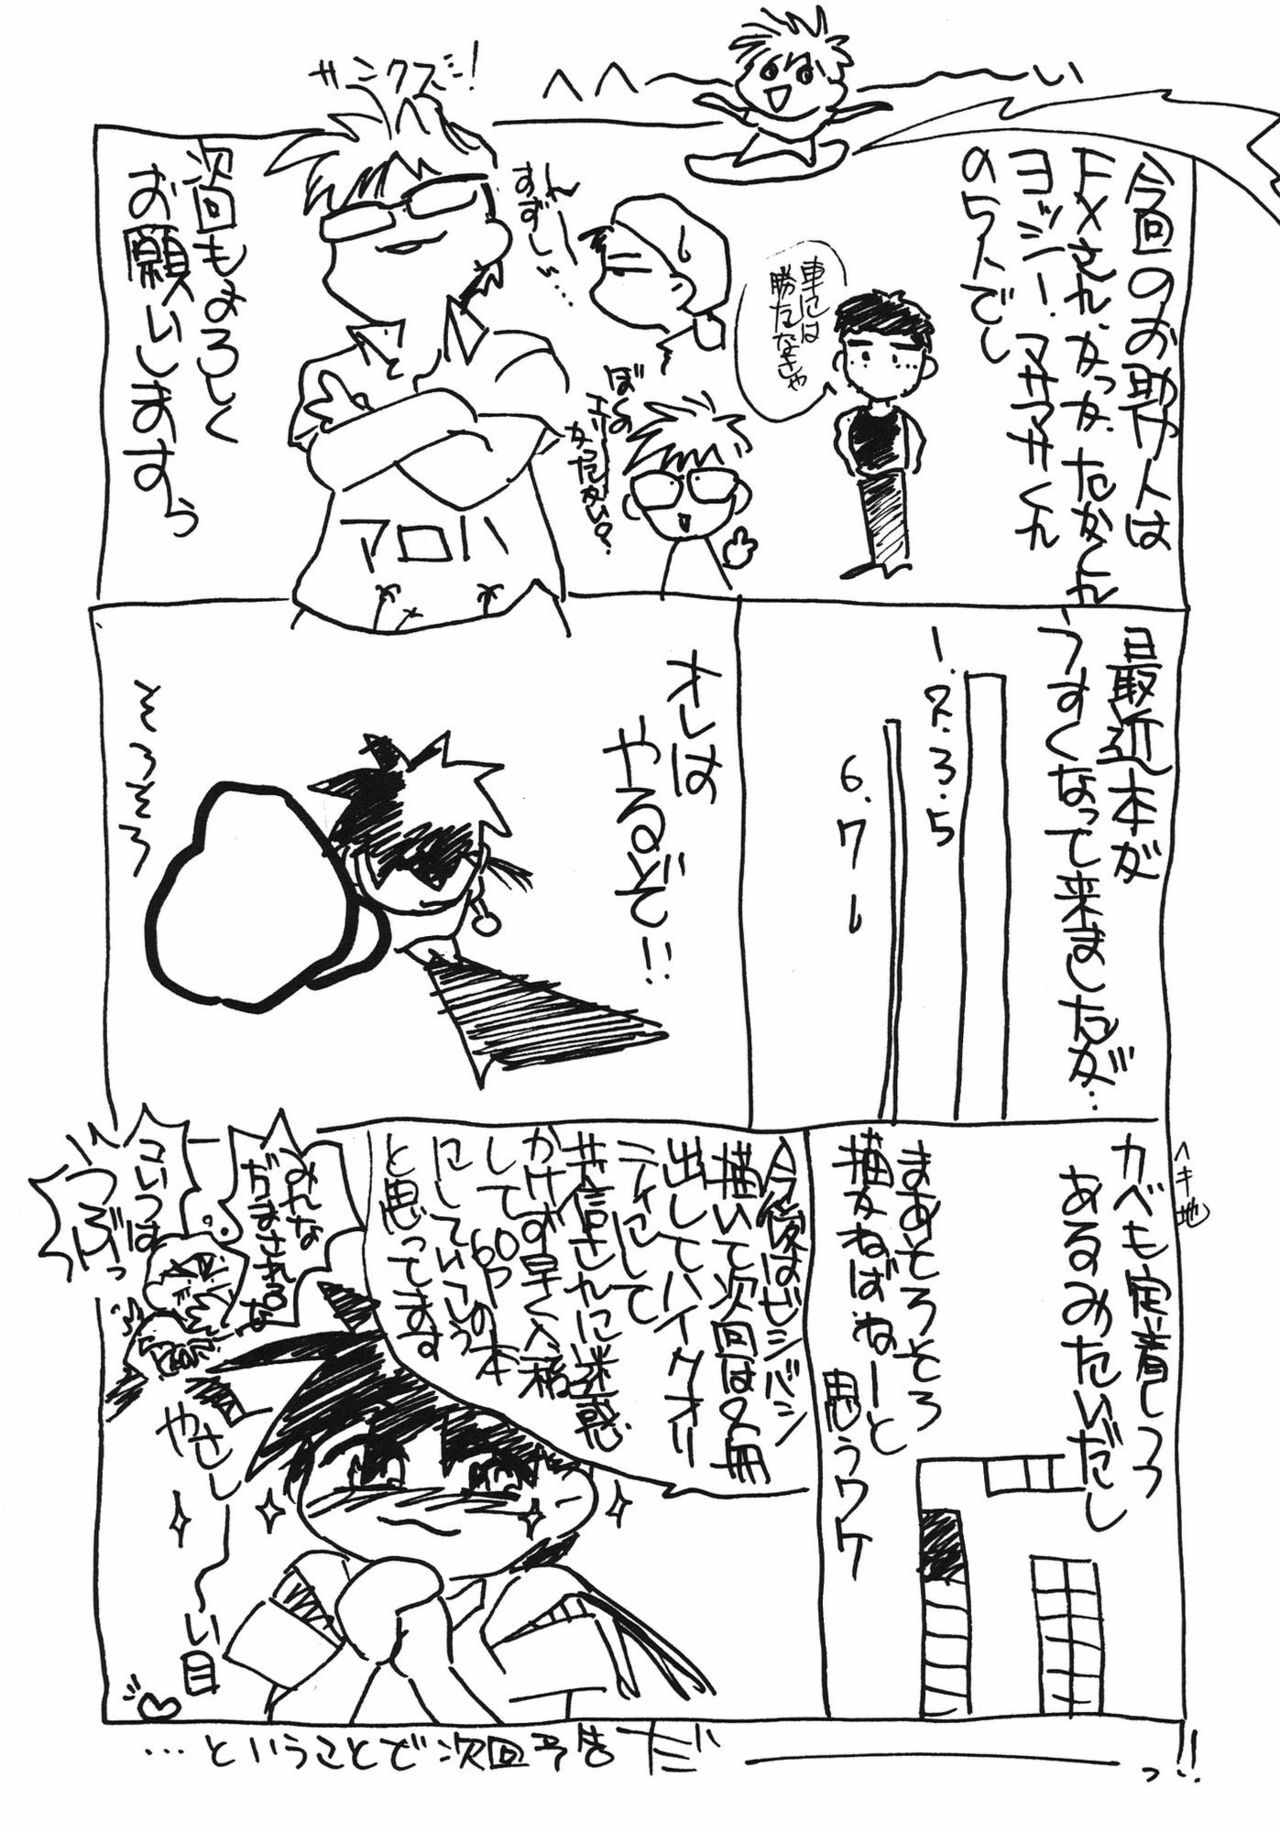 へへ〜〜い
今回のお助け人は
ヨッシー、マサマサくん
の5人でし
車には
勝たなきゃ
すずし〜…
ぼくの
サンクス!
アロハ
次回もよろしく
お願いしますう
最近本が
うすくなって来ましたが…
1.2.3.5
6.7
オレは
やるぞ!!
そろそろ
カベも定着しつつ
あるみたいだし
ヘキ地
まあそろそろ
描かねばねーと
思うワケ
今後はゼシバシ
描いて次回は2冊
出してハイクオリ
ティにして
共信さんに迷惑
かけず早く入稿
して60Pの本
にしていこう
と思ってます
みんな
だまされるな
コイツは
つぶっ
やさし〜い目
…ということで次回予告だ――っ!!